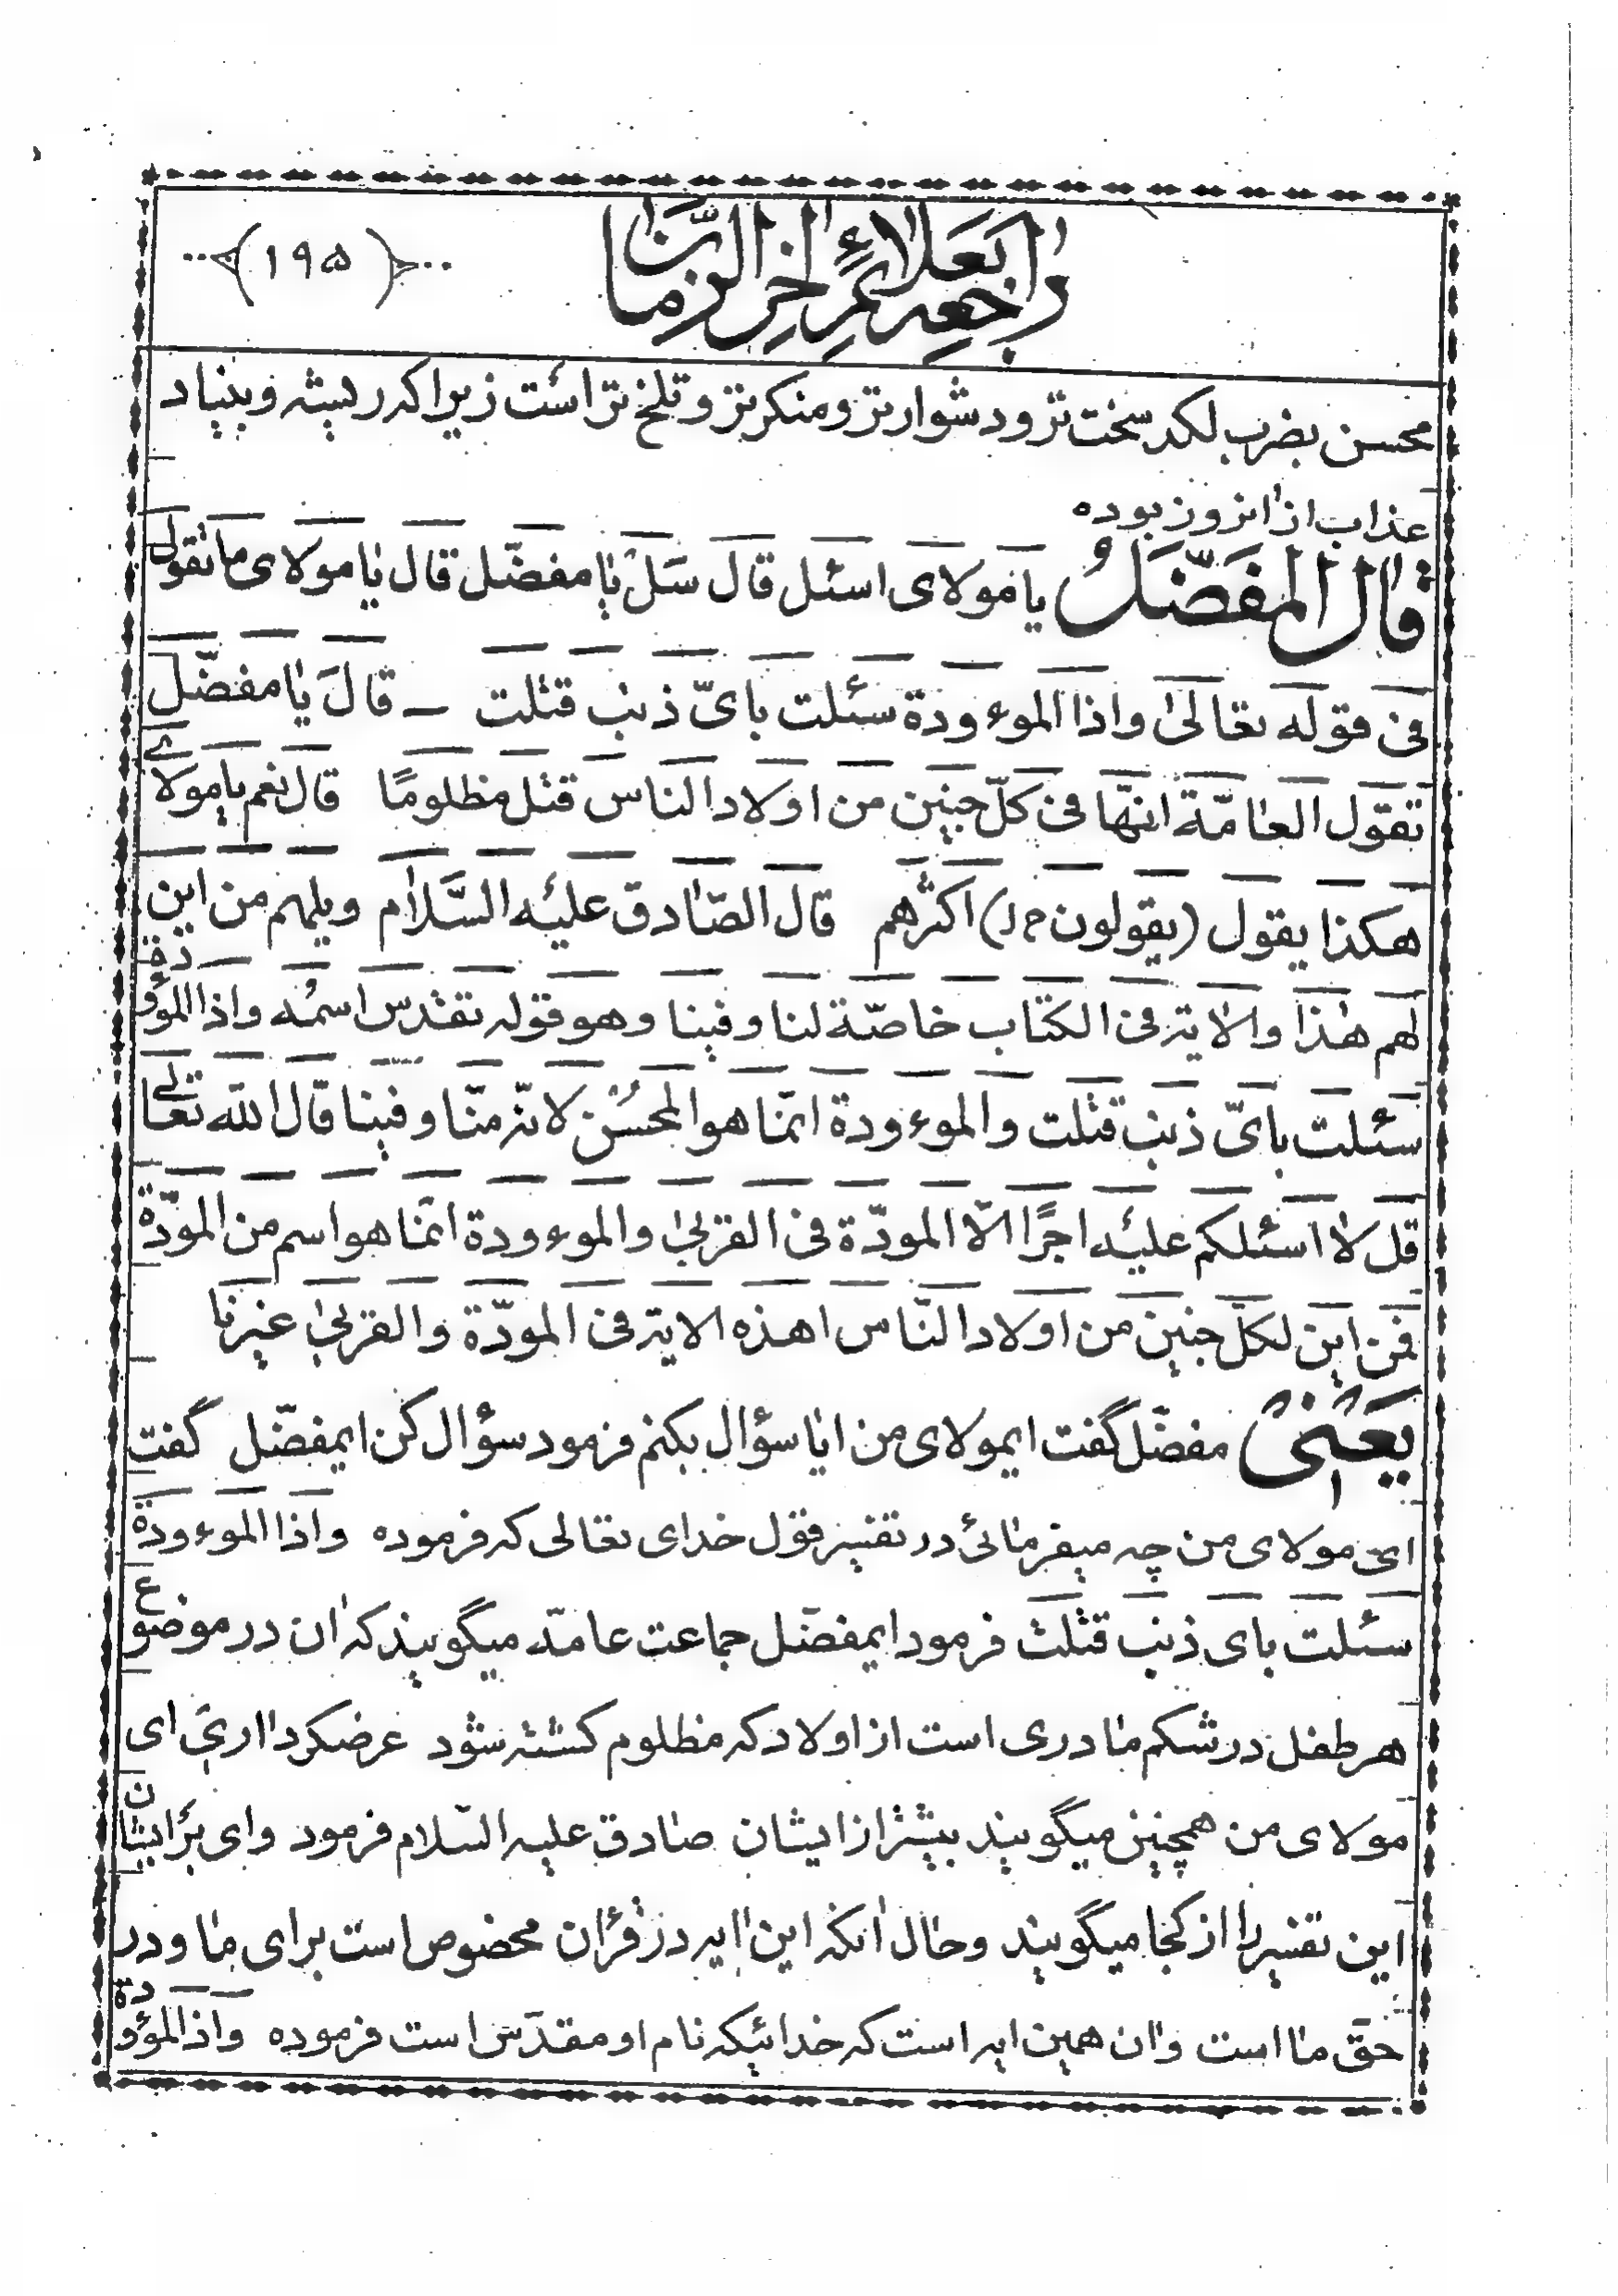 راجعه بعلائم اٰخر الزّمان
(۱۹۵)
محسن بضرب لکد سخت تر و دشوار تر و منکر تر و تلخ تر است زیرا که ریشه و بنیاد
عذاب از انروز بوده
قال المفضّل یا مولای اسئل قال سَل یا مفضّل قال یا مولای ما تقول
فی قوله تعالیٰ واذا الموءودة سئلت بایّ ذنب قتلت – قال یا مفضّل
تقول العامّة انّها فی کلّ جنین من اولاد الناس قتل مظلومًا قال نعم یا مولای
هکذا یقول (یقولون خ ل) اکثرهم قال الصّادق علیه السَّلام ویلهم من این
لهم هٰذا والایة فی الکتاب خاصّة لنا وفینا وهو قوله تقدس اسمُه واذا الموءودة
سئلت بایّ ذنب قتلت والموءودة انّما هو المحسُن لانّه منّا وفینا قال الله تعالی
قل لا اسئلکم علیه اجرًا الّا المودّة فی القربیٰ والموءودة انّما هو اسم من المودّة
فمن این لکلّ جنین من اولاد النّاس اهذه الایة فی المودّة والقربیٰ غیرنا
یَعنی مفضّل گفت ایمولای من ایا سؤال بکنم فرمود سؤال کن ایمفضّل گفت
ای مولای من چه میفرمائی در تفسیر قول خدای تعالی که فرموده واذا الموءودة
سئلت بای ذنب قتلت فرمود ایمفضّل جماعت عامّه میگویند که اٰن در موضوع
هر طفل در شکم مادری است از اولاد که مظلوم کشته شود عرضکرد اری ای
مولای من همچنین میگویند بیشتر از ایشان صادق علیه السّلام فرمود وای بر ایشان
این تفسیر را از کجا میگویند و حال اٰنکه این ایه در قرٰان مخصوص است برای ما و در
حقّ ما است و ان همین ایه است که خدائیکه نام او مقدّس است فرموده واذا الموءودة